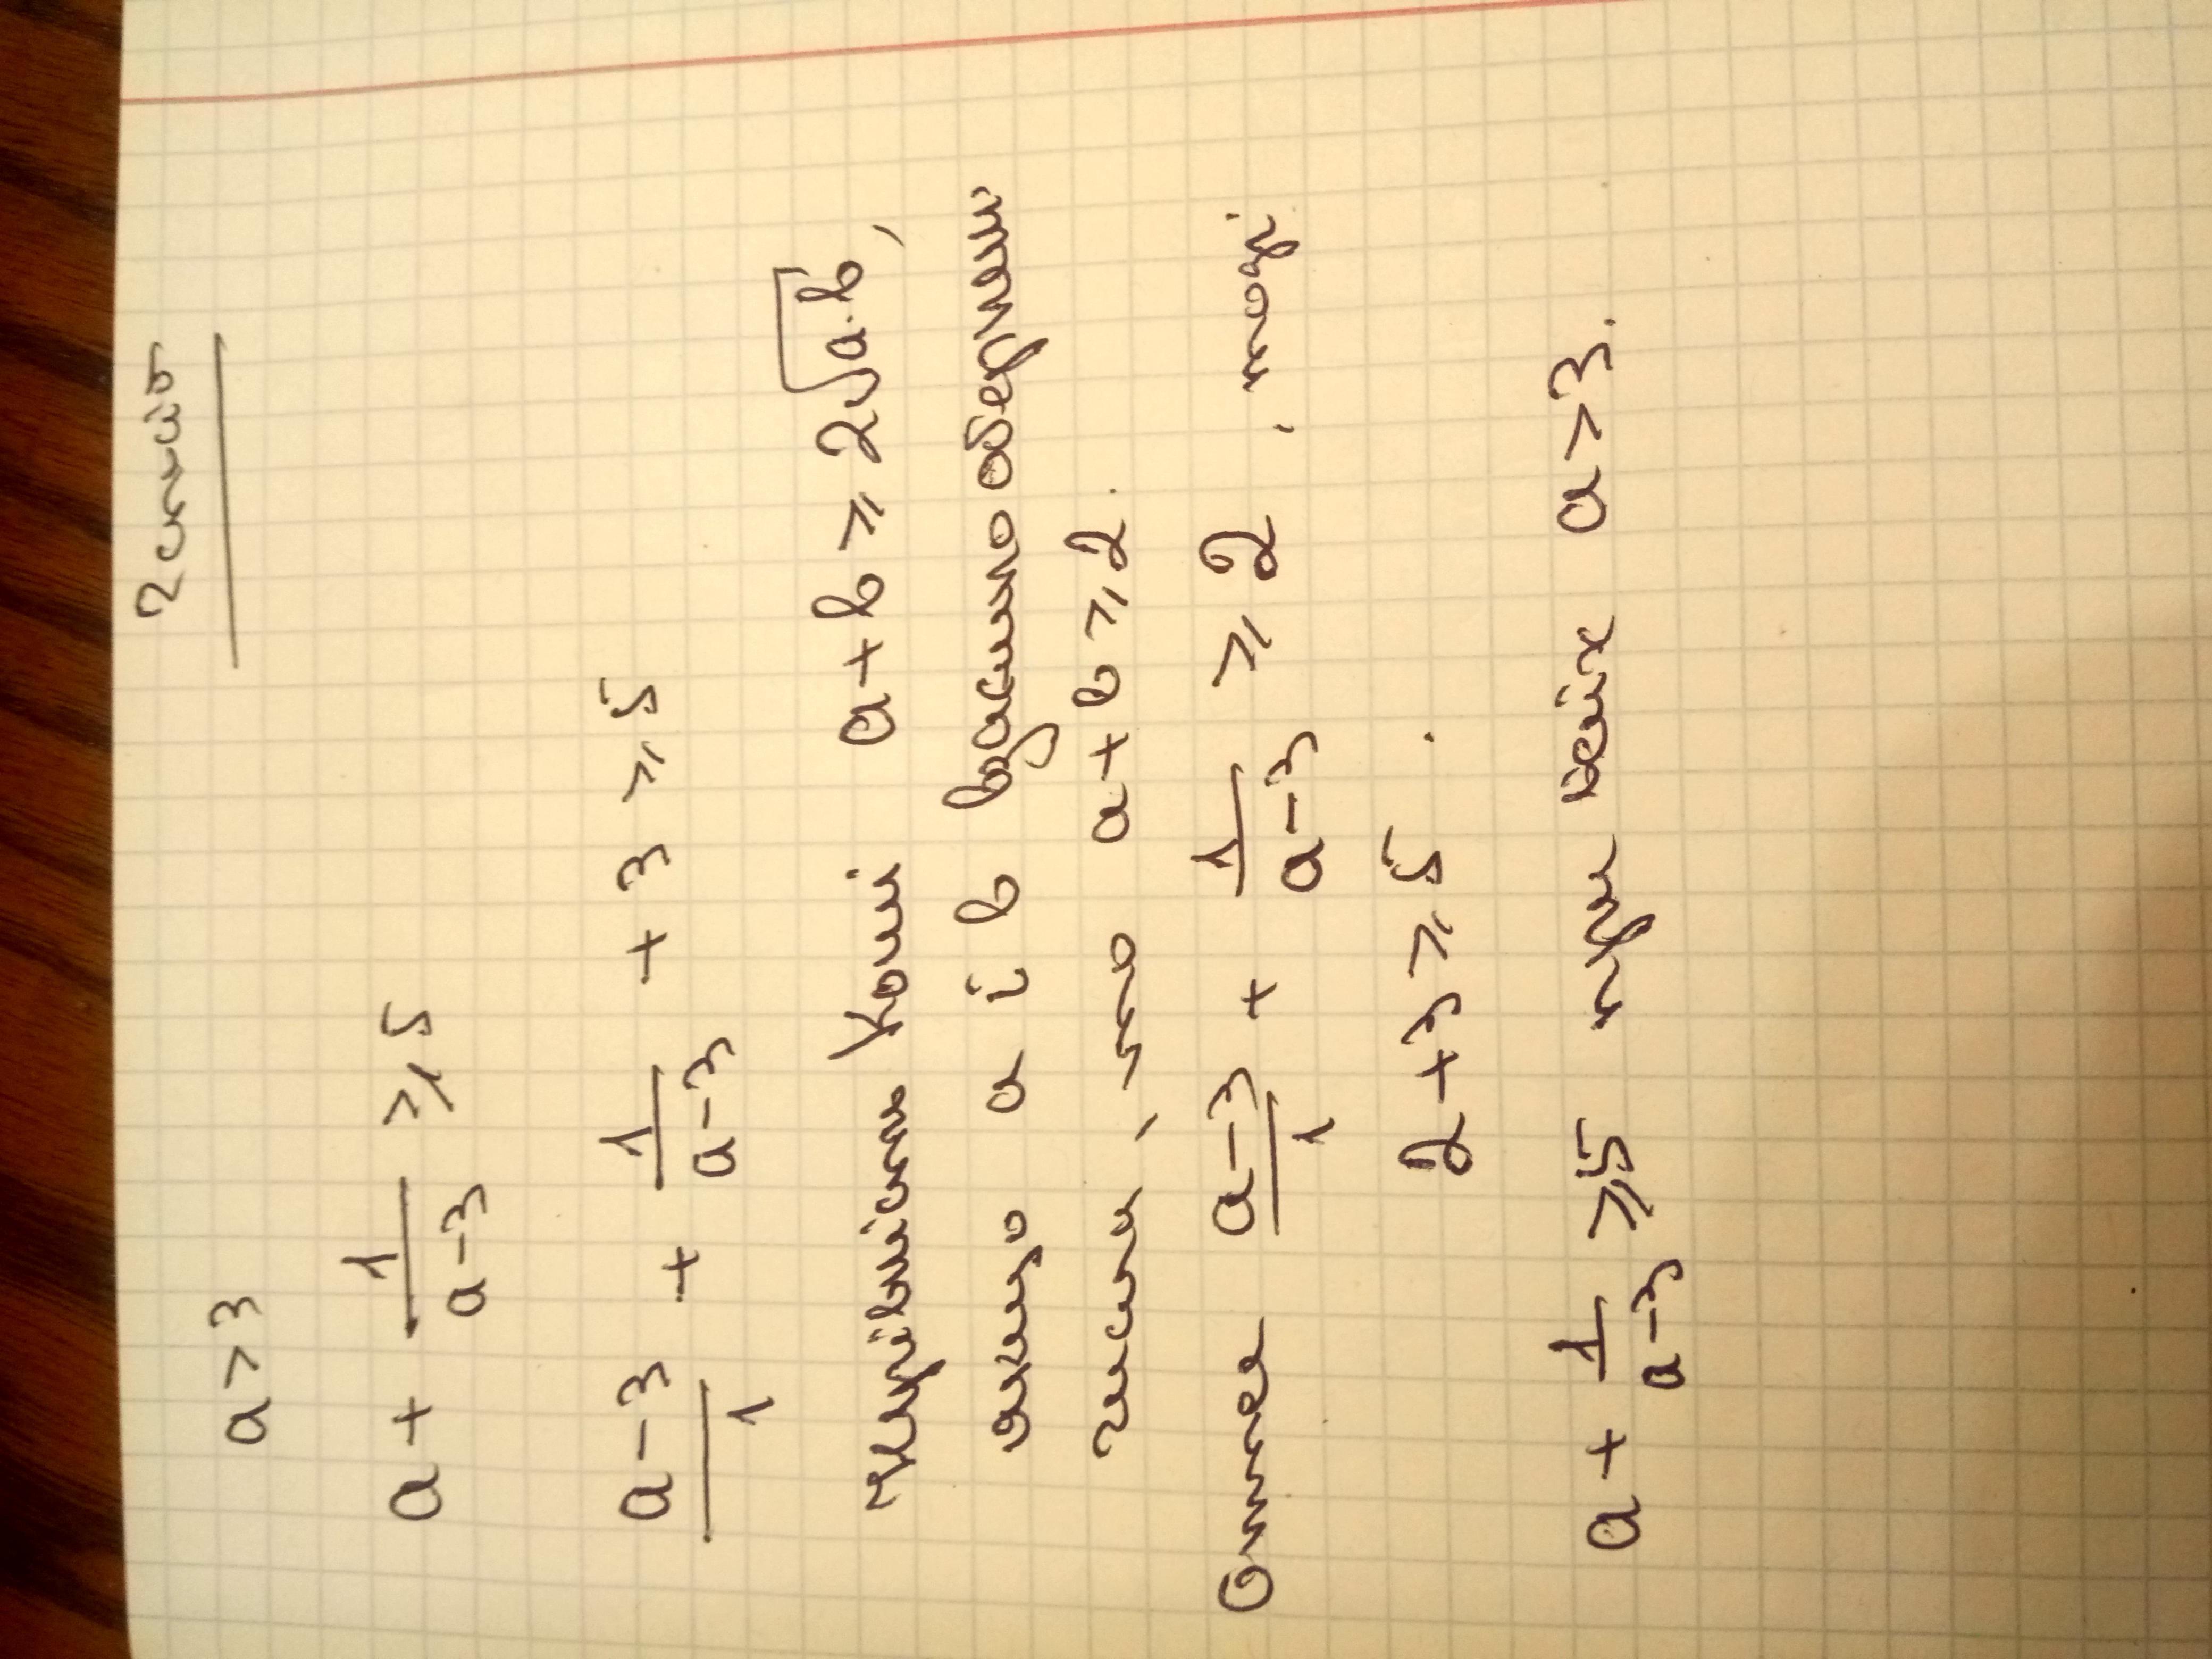 2 спосіб
a > 3
a + 1/(a-3) ≥ 5
(a-3)/1 + 1/(a-3) + 3 ≥ 5
Нерівність Коші a + b ≥ 2√(a·b),
якщо a і b взаємнообернені
числа, то a + b ≥ 2.
Отже (a-3)/1 + 1/(a-3) ≥ 2, тоді
2 + 3 ≥ 5.
a + 1/(a-3) ≥ 5 при всіх a > 3.